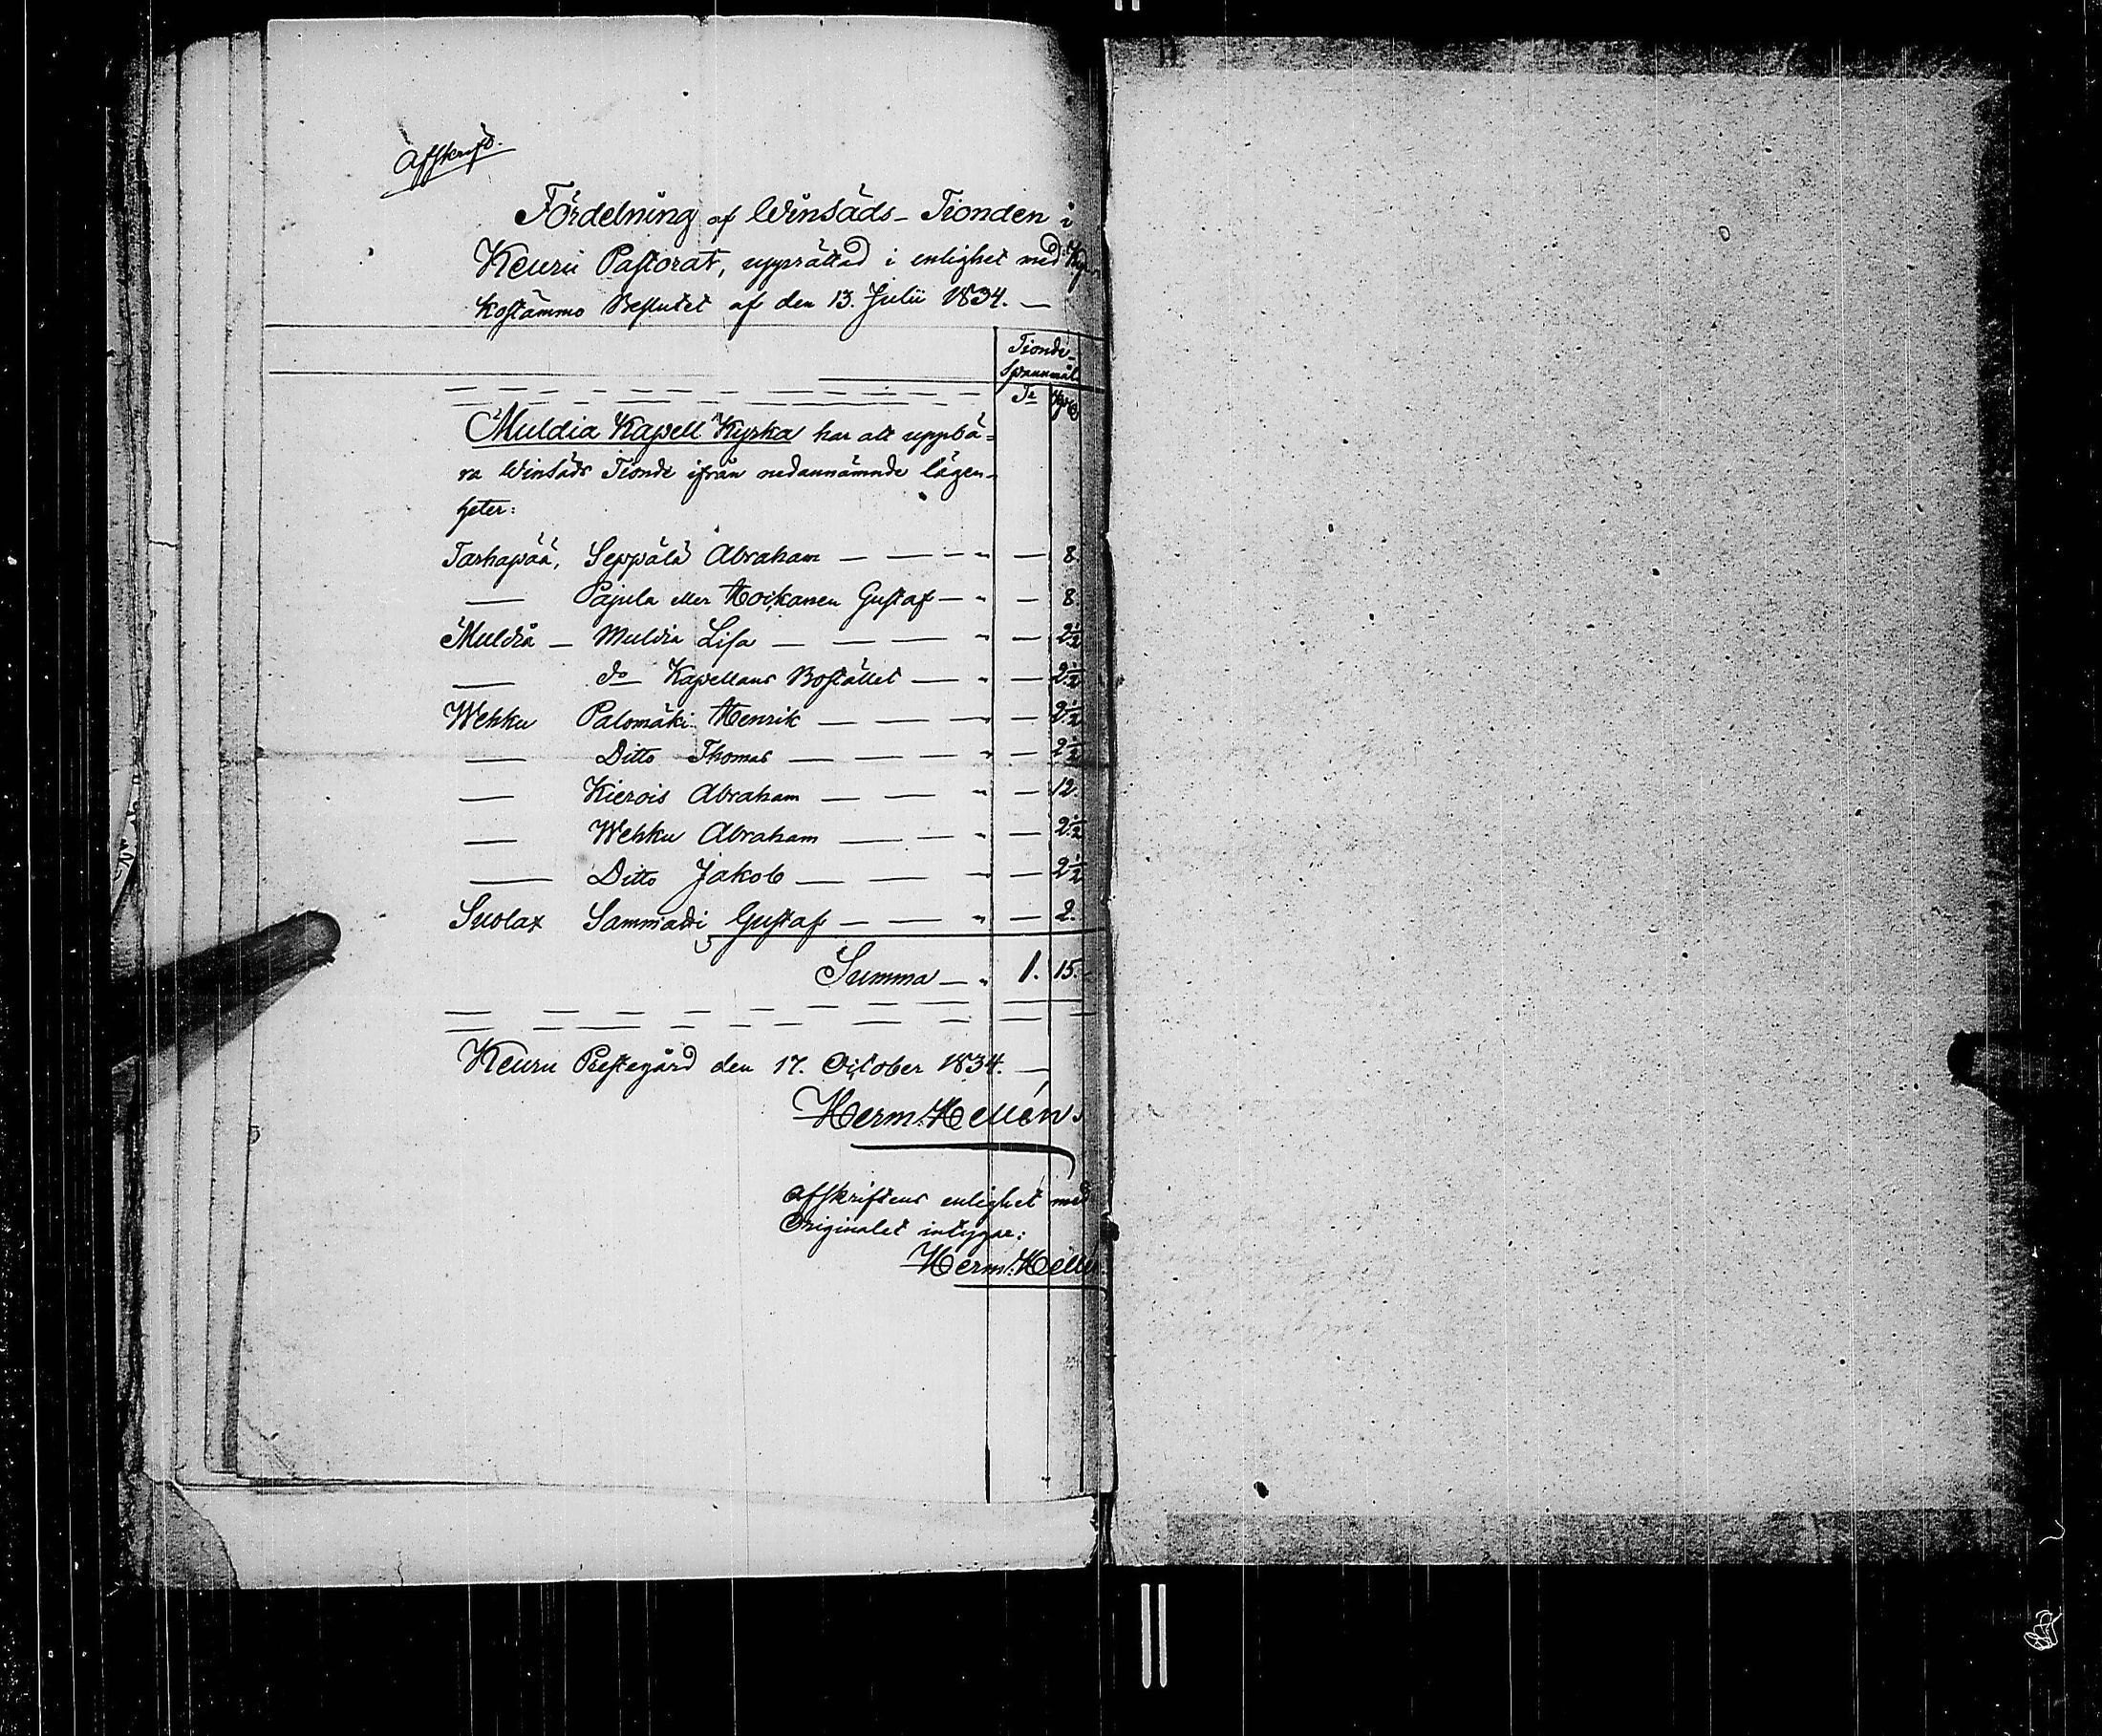 Afskrift.
Fördelning af Winsäds-Tionden i
Keuru Pastorat, upprättad i enlighet med Kyr-
kostämmo Beslutet af den 13. Julii 1834. —
Tionde-
Spannmål
Tr Kpr
Muldia Kapell Kyrka har att uppbä-
ra Winsäds Tionde ifrån nedannämnde lägen-
heter:
Tarhapää, Seppälä Abraham — — — 8.
— Pajula eller Hoskanen Gustaf — — 8.
Muldia — Muldia Lisa — — — — 2½
— do Kapellans Bostället — — 2½
Wehku Palomäki Henrik — — — — 2½
— Ditto Thomas — — — — 2½
— Kierois Abraham — — — 12.
— Wehku Abraham — — — 2½
— Ditto Jakob — — — — 2½
Suolax Gustaf — — — 2.
Summa — 1. 15.
Keuru Prestegård den 17. October 1834. —
Herm. Hellén.
Afskriftens enlighet med
Originalet intygar:
Herm. Hellén